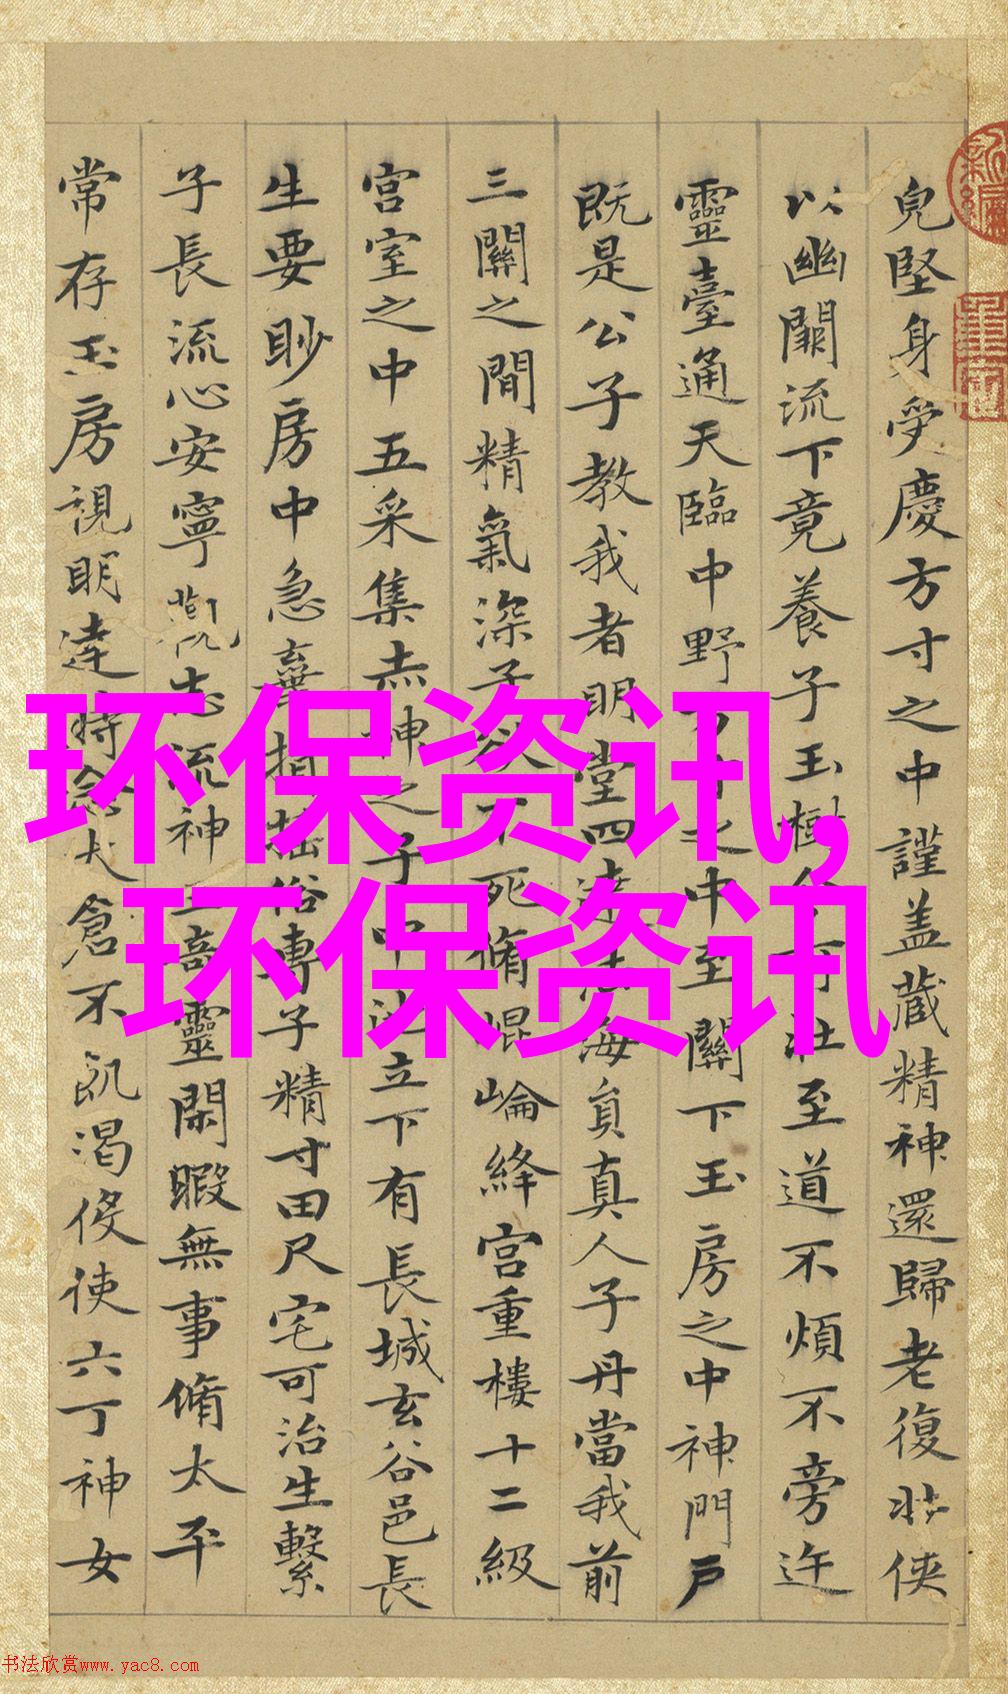 兒堅身受慶方寸之中謹盖藏精神還歸老復壯侠
以幽闕流下竟養子玉樹令可壯至道不煩不旁迕
靈臺通天臨中野方寸之中至關下玉房之中神門戶
既是公子教我者明堂四達法海員真人子丹當我前
三關之間精氣深子欲不死脩崐崘絳宮重樓十二級
宮室之中五采集赤神之子中池立下有長城玄谷邑長
生要眇房中急棄捐俗專子精寸田尺宅可治生繫
子長流心安寧觀志流神三奇靈閑暇無事脩太平
常存玉房視明達時念大倉不飢渴伇使六丁神女
环保资讯,
环保资讯
书法欣赏www.yac8.com